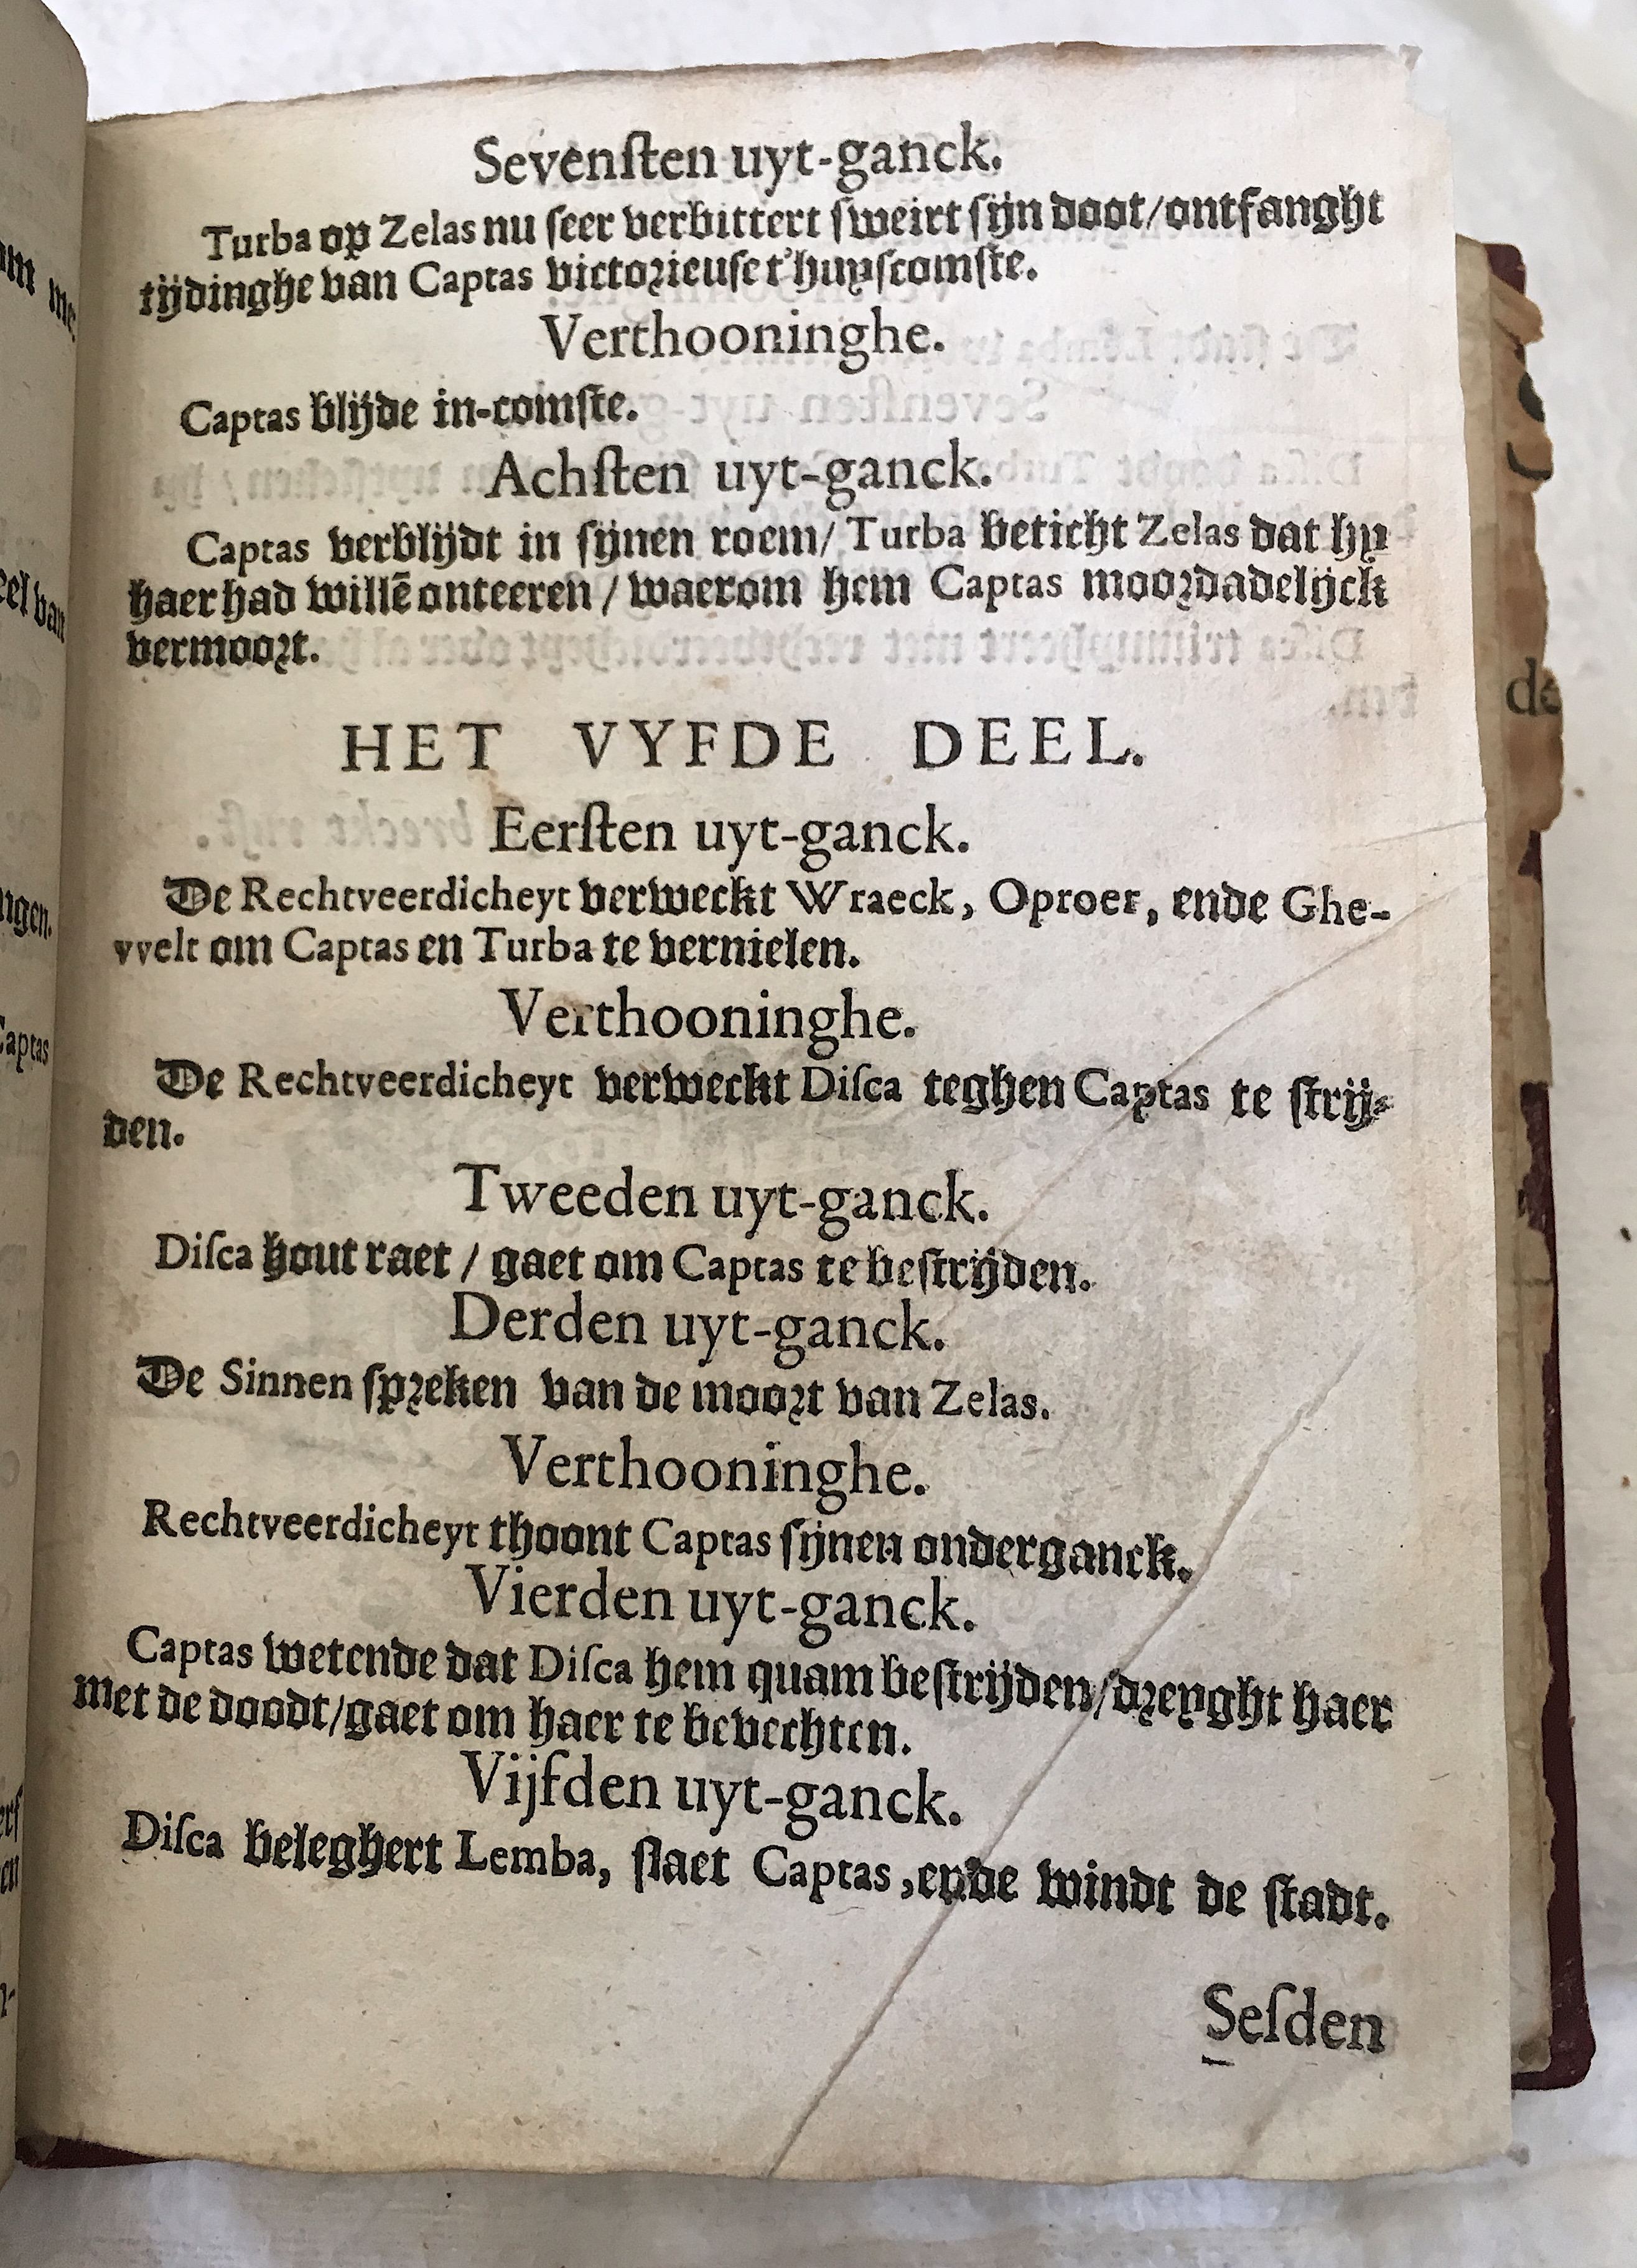 Sevenſten uyt-ganck.
Turba op Zelas nu ſeer verbittert ſweirt ſijn doot/ontfanght
tijdinghe van Captas victorieuſe t'huyſcomſte.
Verthooninghe.
Captas blijde in-comſte.
Achſten uyt-ganck.
Captas verblijdt in ſijnen roem/ Turba beticht Zelas dat hy
haer had willē onteeren / waerom hem Captas moordadelijck
vermoort.
HET VYFDE DEEL.
Eerſten uyt-ganck.
De Rechtveerdicheyt verweckt Wraeck, Oproer, ende Ghe-
vvelt om Captas en Turba te vernielen.
Verthooninghe.
De Rechtveerdicheyt verweckt Diſca teghen Captas te ſtrij-
den.
Tweeden uyt-ganck.
Diſca hout raet / gaet om Captas te beſtrijden.
Derden uyt-ganck.
De Sinnen ſpreken van de moort van Zelas.
Verthooninghe.
Rechtveerdicheyt thoont Captas ſijnen onderganck.
Vierden uyt-ganck.
Captas wetende dat Diſca hem quam beſtrijden/dreyght haer
met de doodt/gaet om haer te bevechten.
Vijfden uyt-ganck.
Diſca beleghert Lemba, ſlaet Captas, ende windt de ſtadt.
Seſden